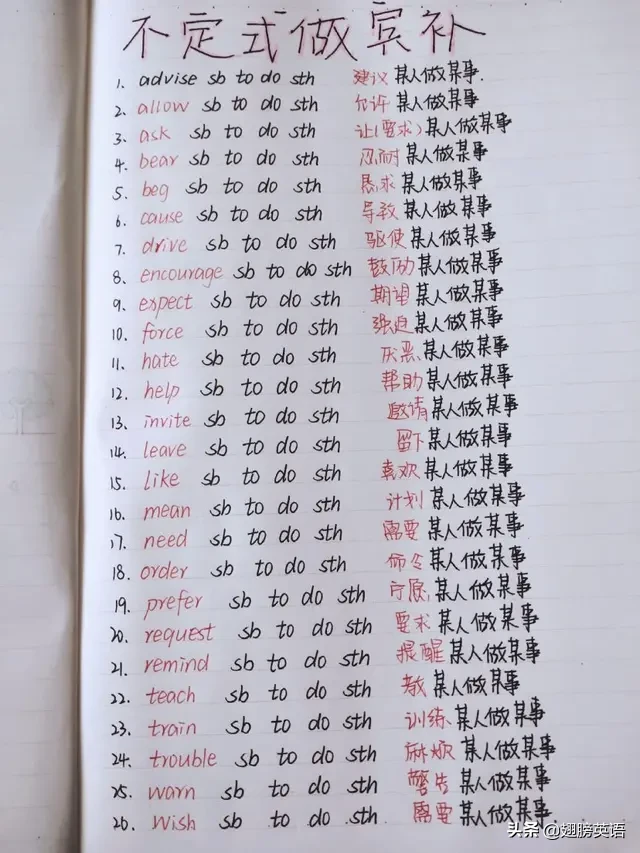 不定式做宾补
1. advise sb to do sth 建议某人做某事.
2. allow sb to do sth 允许某人做某事
3. ask sb to do sth 让(要求)某人做某事
4. bear sb to do sth 忍耐某人做某事
5. beg sb to do sth 恳求某人做某事
6. cause sb to do sth 导致某人做某事
7. drive sb to do sth 驱使某人做某事
8. encourage sb to do sth 鼓励某人做某事
9. expect sb to do sth 期望某人做某事
10. force sb to do sth 强迫某人做某事
11. hate sb to do sth 厌恶某人做某事
12. help sb to do sth 帮助某人做某事
13. invite sb to do sth 邀请某人做某事
14. leave sb to do sth 留下某人做某事
15. like sb to do sth 喜欢某人做某事
16. mean sb to do sth 计划某人做某事
17. need sb to do sth 需要某人做某事
18. order sb to do sth 命令某人做某事
19. prefer sb to do sth 宁愿某人做某事
20. request sb to do sth 要求某人做某事
21. remind sb to do sth 提醒某人做某事
22. teach sb to do sth 教某人做某事
23. train sb to do sth 训练某人做某事
24. trouble sb to do sth 麻烦某人做某事
25. warn sb to do sth 警告某人做某事
26. wish sb to do sth 需要某人做某事
头条 @翅膀英语